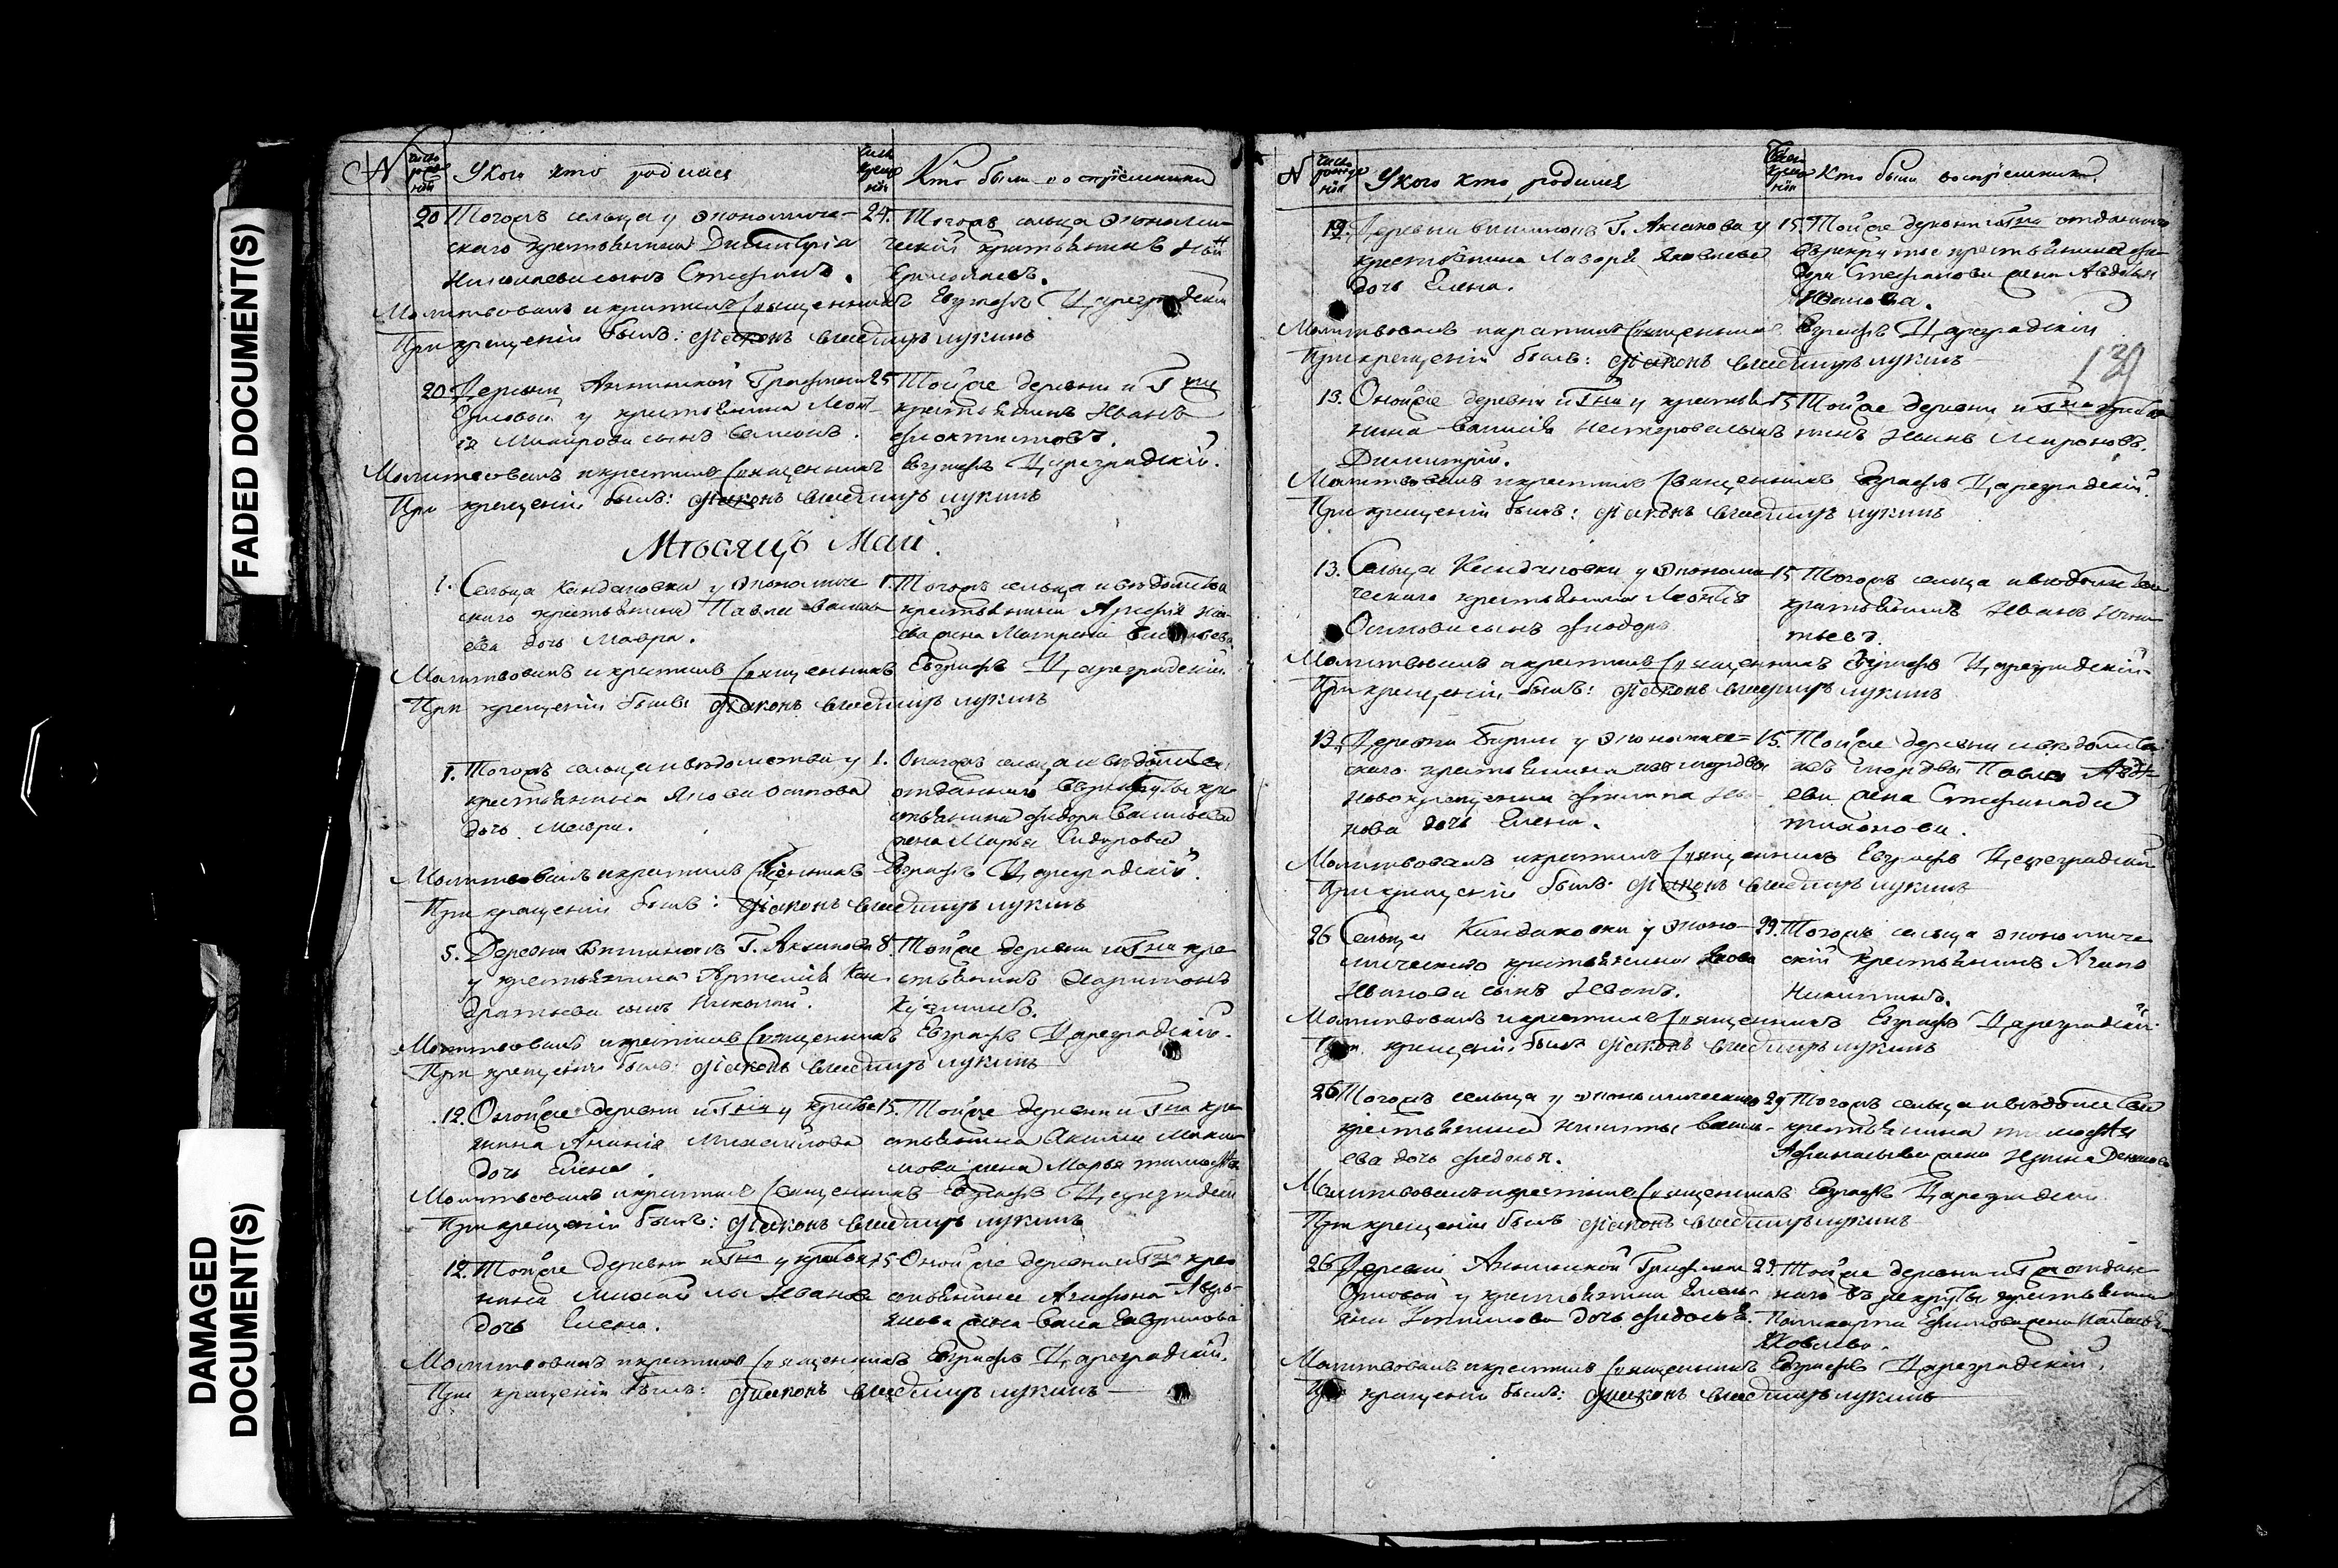 FADED DOCUMENT(S)
DAMAGED
DOCUMENT(S)
N
число рождения
У кого кто родился
число крещения
Кто были восприемники
20 Тогожъ сельца у экономиче-
скаго крестьянина Димитрія
сынъ Стефанъ.
24. Тогожъ сельца экономи-
ческой крестьянинъ
Ермолаевъ.
Молитвовалъ и крестилъ священникъ Евграфъ Цареградскій
При крещеніи былъ: діаконъ Владимиръ Лукинъ
20 Деревни Аннинской Графини
Орловой у крестьянина Леонт-
ія сынъ Симеонъ.
25 Тойже деревни и Гжи
крестьянинъ Иванъ
Феоктистовъ.
Молитвовалъ и крестилъ священникъ Евграфъ Цареградскій.
При крещеніи былъ: діаконъ Владимиръ Лукинъ
Мѣсяцъ Маій.
1. Сельца Кандаковки у экономиче
скаго крестьянина Павла Василь-
ева дочь Мавра.
1. Тогожъ сельца и вѣдомства
крестьянина
жена Матрена
Молитвовалъ и крестилъ священникъ Евграфъ Цареградскій.
При крещеніи былъ діаконъ Владимиръ Лукинъ
1. Тогожъ сельца и вѣдомства у
крестьянина Якова Осипова
дочь Мавра.
1. Оногожъ сельца и вѣдомства
отданнаго въ рекруты кре
стьянина Федора Васильева
жена Марья Сидорова
Молитвовалъ и крестилъ священникъ Евграфъ Цареградскій.
При крещеніи былъ: діаконъ Владимиръ Лукинъ
5. Деревни Г. Аксакова
у крестьянина Артемія Кон-
дратьева сынъ Николай.
8. Тойже деревни и Гна кре-
стьянинъ Харитонъ
Кузминъ.
Молитвовалъ и крестилъ священникъ Евграфъ Цареградскій.
При крещеніи былъ: діаконъ Владимиръ Лукинъ
12. Онойже деревни и Гна у крестья
нина Ананія Михайлова
дочь Елена.
15. Тойже деревни и Гна кре
стьянина Акима Макси
мова жена Марья
Молитвовалъ и крестилъ священникъ Евграфъ Цареградскій
При крещеніи былъ: діаконъ Владимиръ Лукинъ
12. Тойже деревни и Гна у крестья
нина Михайлы Иванова
дочь Елена.
15 Онойже деревни и Гна крес
стьянина Агафона Аверь-
янова жена Васса Гаврилова
Молитвовалъ и крестилъ священникъ Евграфъ Цареградскій.
При крещеніи былъ: діаконъ Владимиръ Лукинъ
N
число рожденія
У кого кто родился
число крещенія
Кто были восприемники.
Деревни Г. Аксакова у
крестьянина Лазаря Яковлева
дочь Елена.
15. Тойже деревни и Гна отданнаго
въ рекруты крестьянина Фе-
дора Стефанова жена Авдотья
Иванова.
Молитвовалъ и крестилъ священникъ Евграфъ Цареградскій
При крещеніи былъ: діаконъ Владимиръ Лукинъ
13. Онойже деревни и Гна у крестья
нина Василія Нестерова сынъ
Димитрій.
15 Тойже деревни и Гна крестья
нинъ Иванъ Мироновъ.
Молитвовалъ и крестилъ священникъ Евграфъ Цареградскій.
При крещеніи былъ: діаконъ Владимиръ Лукинъ
13. Сельца Кандаковки у экономи
ческаго крестьянина Леонтія
Осипова сынъ Феодоръ
15 Тогожъ сельца и вѣдомства
крестьянинъ Иванъ Игна-
тьевъ.
Молитвовалъ и крестилъ священникъ Евграфъ Цареградскій.
При крещеніи былъ: діаконъ Владимиръ Лукинъ
13. Деревни у экономиче=
скаго крестьянина изъ мордвы
новокрещенна Филиппа Ива
нова дочь Елена.
15. Тойже деревни и вѣдомства
изъ мордвы Павла Авдѣ
ева жена Стефанида
Тихонова.
Молитвовалъ и крестилъ священникъ Евграфъ Цареградскій
При крещеніи былъ: діаконъ Владимиръ Лукинъ
26 Сельца Кандаковки у эконо-
мическаго крестьянина Якова
Иванова сынъ Иванъ.
29. Тогожъ сельца экономиче
скій крестьянинъ Агапъ
Никитинъ.
Молитвовалъ и крестилъ священникъ Евграфъ Цареградскій.
При крещеніи былъ діаконъ Владимиръ Лукинъ
26 Тогожъ сельца у экономическаго
крестьянина Никиты Василь-
ева дочь Федосья.
29 Тогожъ сельца и вѣдомства
крестьянина Тимофѣя
Афанасьева жена Ирина Денисова
Молитвовалъ и крестилъ священникъ Евграфъ Цареградскій.
При крещеніи былъ діаконъ Владимиръ Лукинъ
26 Деревни Аннинской Графини
Орловой у крестьянина Емель-
яна дочь Федосья.
29. Тойже деревни и Гжи отдан-
наго въ рекруты крестьянина
Поликарпа Ефимова жена Наталья
Яковлева.
Молитвовалъ и крестилъ священникъ Евграфъ Цареградскій.
При крещеніи былъ: діаконъ Владимиръ Лукинъ